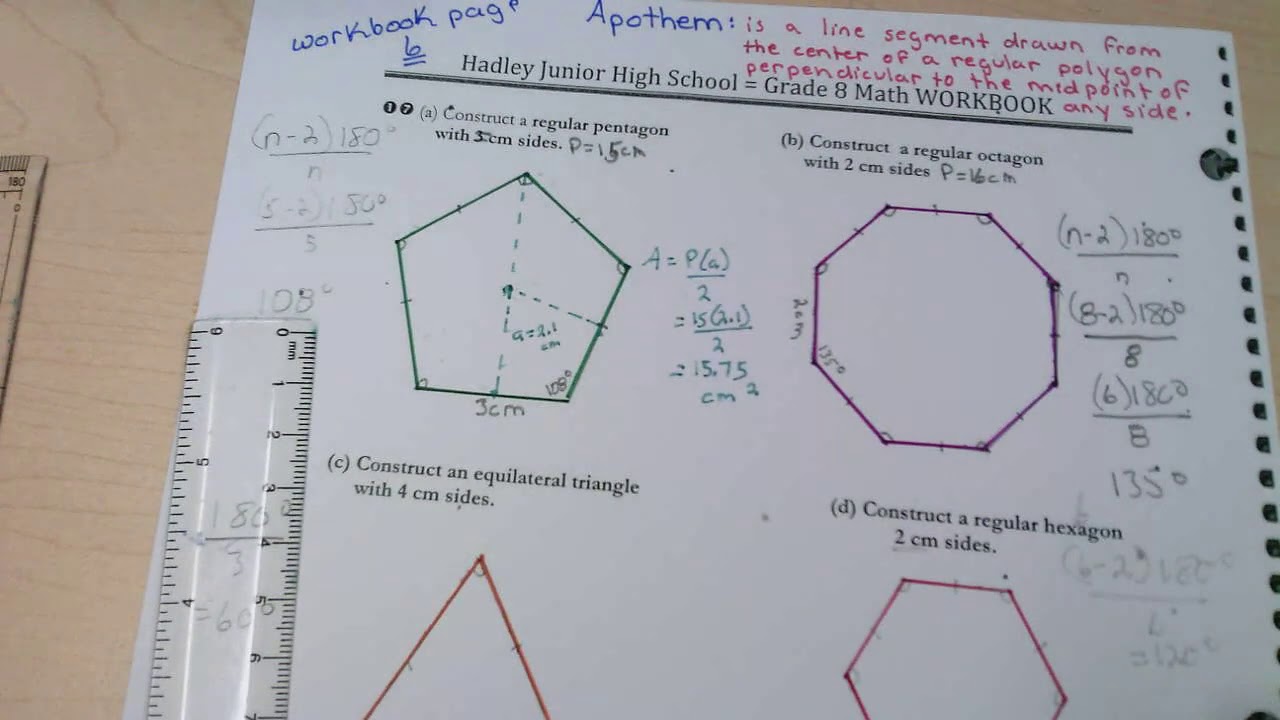 workbook page
6
Apothem: is a line segment drawn from
the center of a regular polygon
perpendicular to the midpoint of
any side.
Hadley Junior High School = Grade 8 Math WORKBOOK
❶❼ (a) Construct a regular pentagon
with 3 cm sides. P=15cm
(n-2)180°
n
(5-2)180°
5
108°
a=2.1
cm
108°
3cm
A = P(a)
2
= 15(2.1)
2
= 15.75
cm²
(b) Construct a regular octagon
with 2 cm sides P=16cm
135°
(n-2)180°
n
(8-2)180°
8
(6)180°
8
135°
(c) Construct an equilateral triangle
with 4 cm sides.
180°
3
=60°
(d) Construct a regular hexagon
2 cm sides.
(6-2)180°
=120°
180
0
0
mm
1
2
3
4
5
6
7
6
5
4